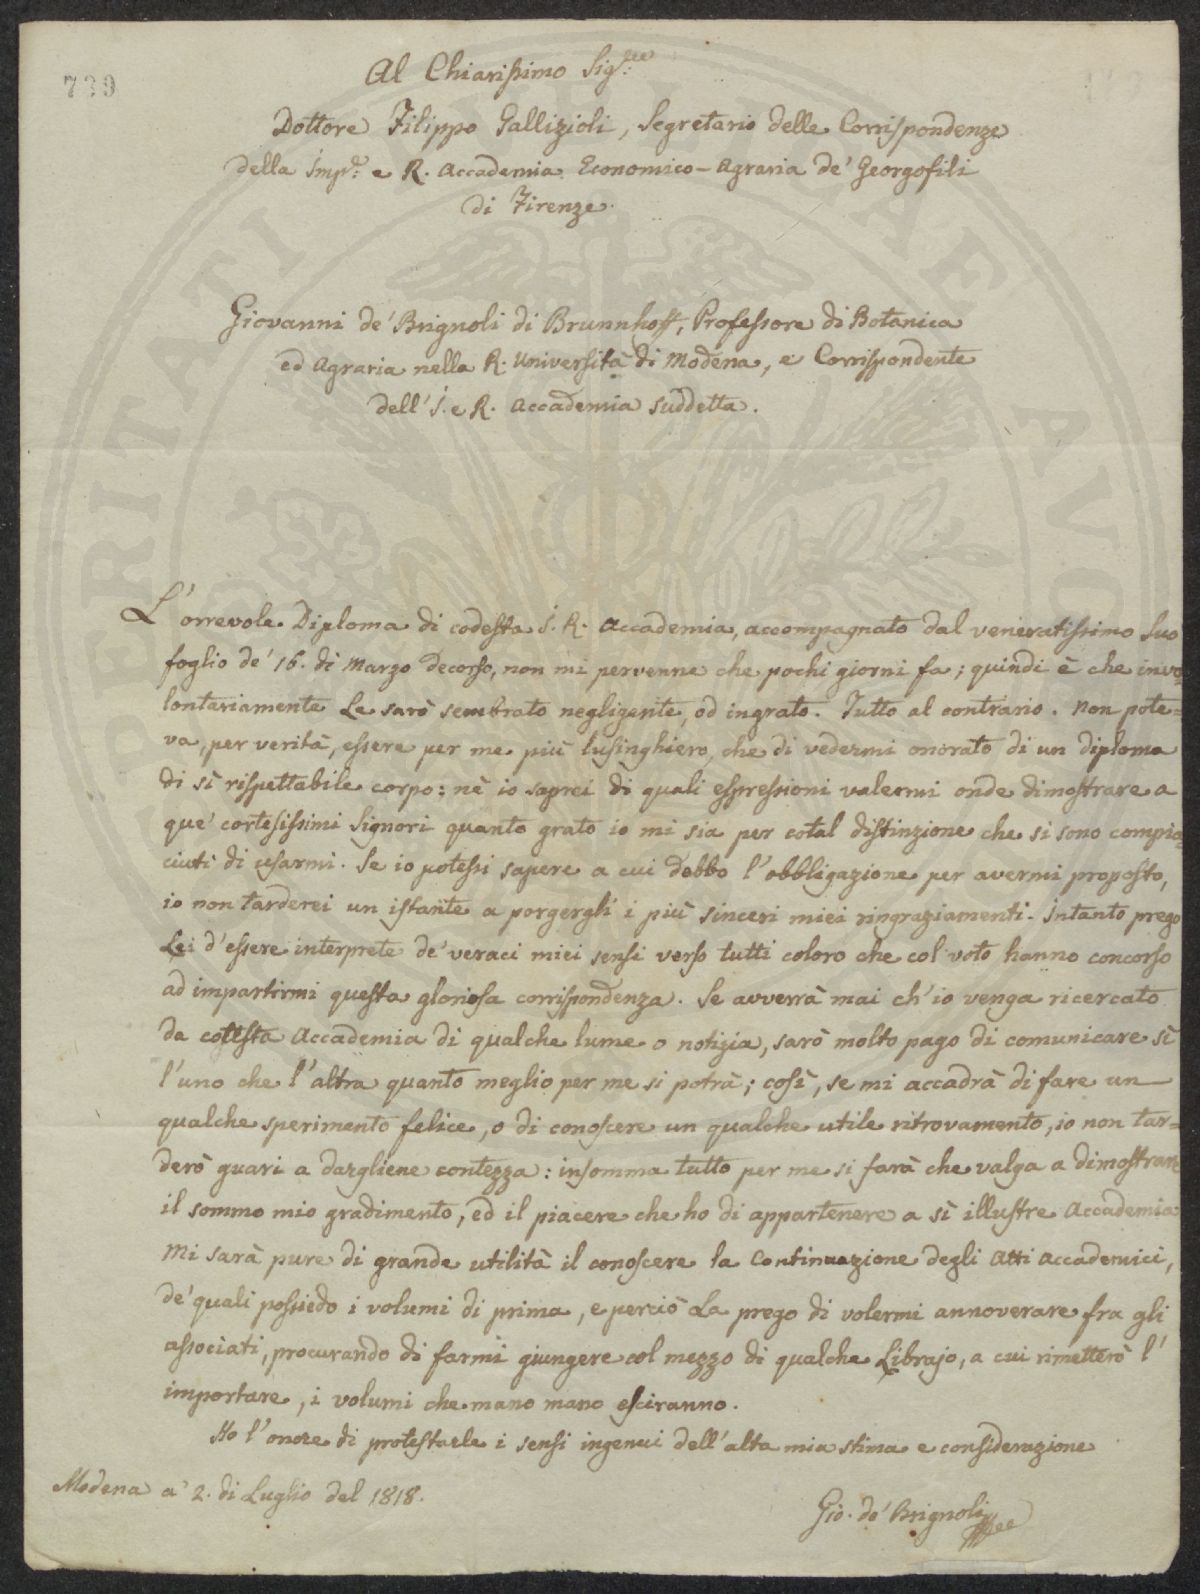 739
Al Chiarissimo Sig.re
Dottore Filippo Gallizioli, Segretario delle Corrispondenze
della Imp.e e R. Accademia Economico-Agraria de' Georgofili
di Firenze.
Giovanni de' Brignoli di Brunnhoff, Professore di Botanica
ed Agraria nella R. Università di Modena, e Corrispondente
dell' I. e R. Accademia suddetta.
L'orrevole Diploma di codesta I. R. Accademia, accompagnato dal veneratissimo Suo
foglio de' 16. di Marzo decorso, non mi pervenne che pochi giorni fa; quindi è che invo-
lontariamente Le sarò sembrato negligente, od ingrato. Tutto al contrario. Non pote-
va, per verità, essere per me più lusinghiero, che di vedermi onorato di un diploma
di sì rispettabile corpo: nè io saprei di quali espressioni valermi onde dimostrare a
que' cortesissimi Signori quanto grato io mi sia per cotal distinzione che si sono compia-
ciuti di usarmi. Se io potessi sapere a cui debbo l'obbligazione per avermi proposto,
io non tarderei un istante a porgergli i più sinceri miei ringraziamenti. Intanto prego
Lei d'essere interprete de' veraci miei sensi verso tutti coloro che col voto hanno concorso
ad impartirmi questa gloriosa corrispondenza. Se avverrà mai ch'io venga ricercato
da cotesta Accademia di qualche lume o notizia, sarò molto pago di comunicare sì
l'uno che l'altra quanto meglio per me si potrà; così, se mi accadrà di fare un
qualche sperimento felice, o di conoscere un qualche utile ritrovamento, io non tar-
derò guari a dargliene contezza: insomma tutto per me si farà che valga a dimostrare
il sommo mio gradimento, ed il piacere che ho di appartenere a sì illustre Accademia
Mi sarà pure di grande utilità il conoscere la Continuazione degli Atti Accademici,
de' quali possiedo i volumi di prima, e perciò La prego di volermi annoverare fra gli
associati, procurando di farmi giungere col mezzo di qualche Librajo, a cui rimetterò l'
importare, i volumi che mano mano esciranno.
Ho l'onore di protestarle i sensi ingenui dell'alta mia stima e considerazione
Modena a' 2. di Luglio del 1818.
Gio. de' Brignoli